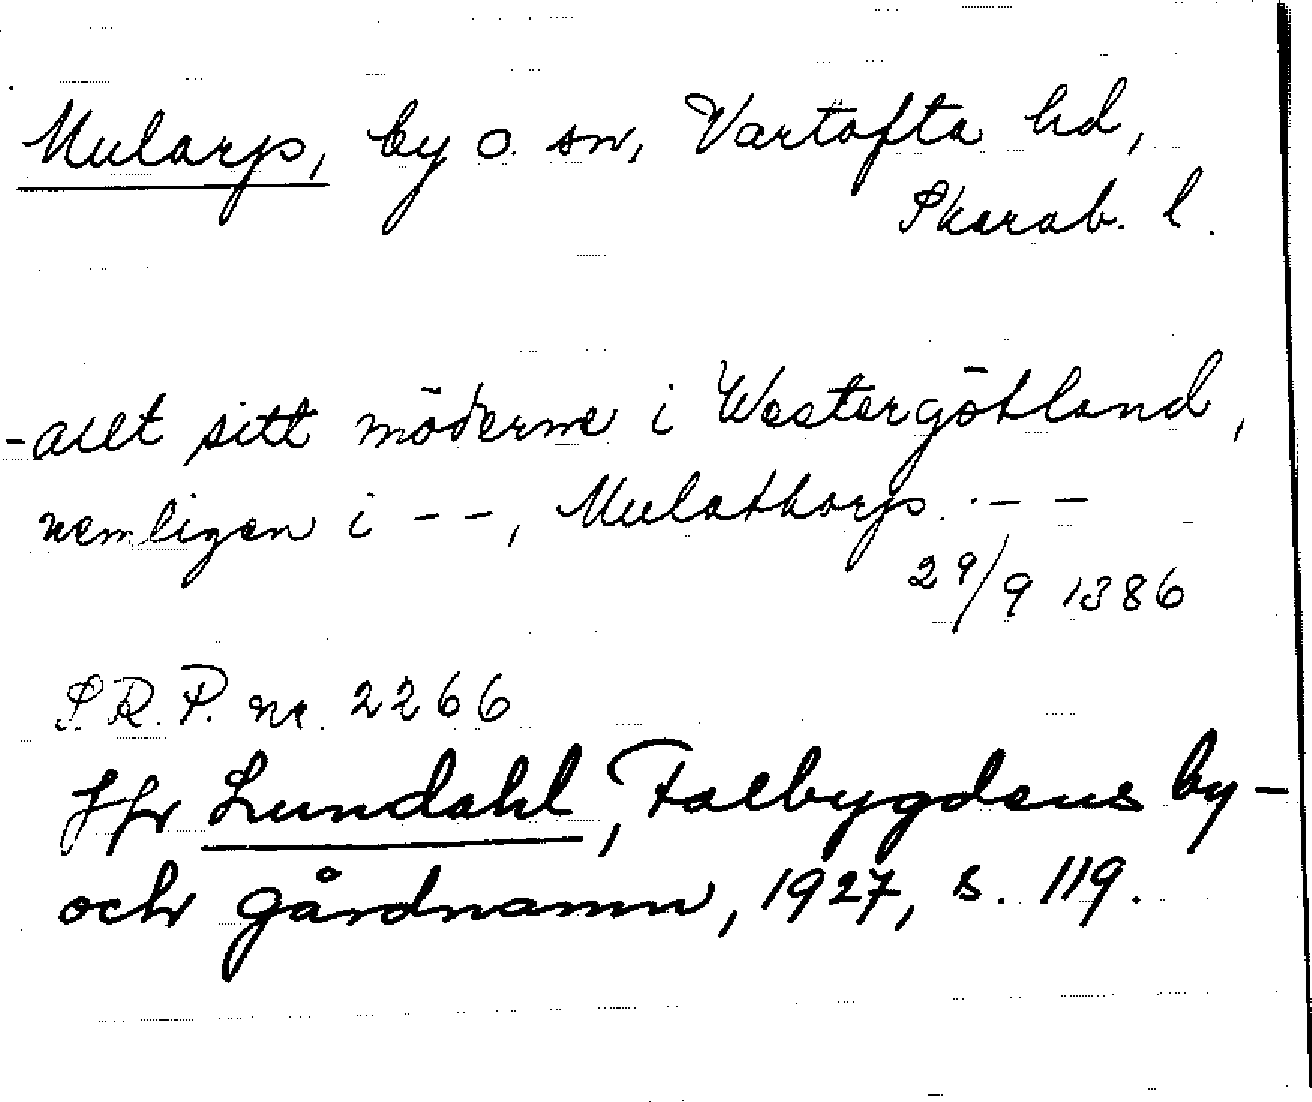 Mularp, by o. sn, Vartofta hd,
Skarab. l.
-allt sitt möderne i Westergöthland,
nemligen i - -, Mulathorp. - -
29/9 1386
S.R.P. nr. 2266
Jfr Lundahl, Falbygdens by-
och gårdnamn, 1927, s. 119.